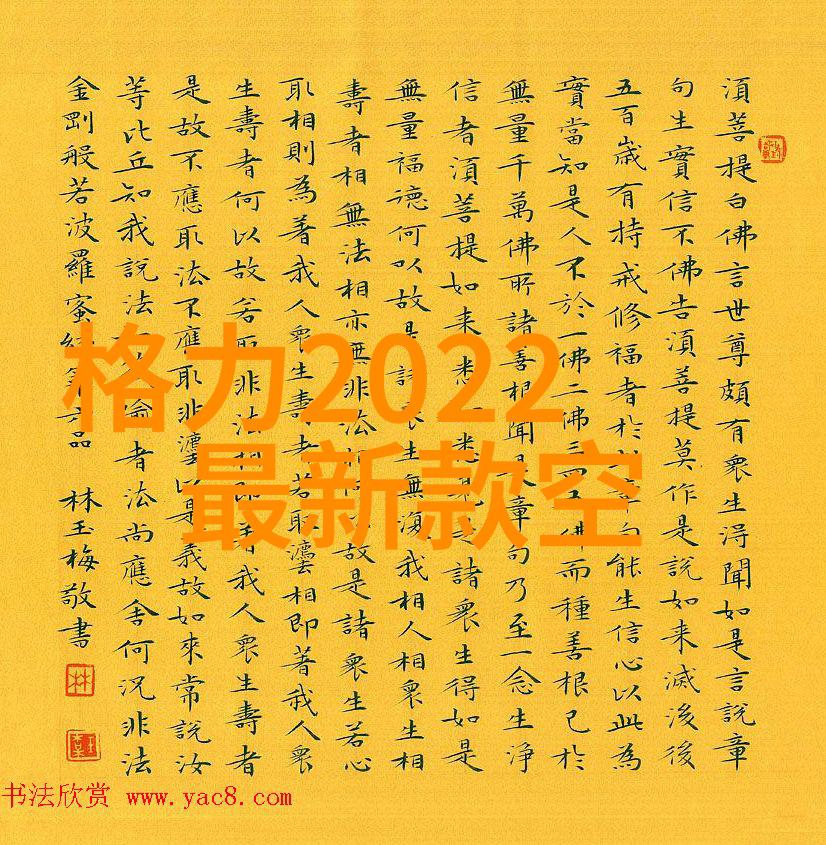 須菩提白佛言世尊頗有衆生得聞如是言說章
句生實信不佛告須菩提莫作是說如来滅後後
五百歲有持戒修福者於章句能生信心以此為
實當知是人不於一佛二佛三佛而種善根已於
無量千萬佛所諸善根聞是章句乃至一念生淨
信者須菩提如来悉悉見是諸衆生得如是
無量福德何以故是諸衆生無復我相人相衆生相
壽者相無法相亦無非法相故是諸衆生若心
取相則為著我人衆生壽者若取灋相即著我人衆
生壽者何以故若取非法相即著我人衆生壽者
是故不應取法不應取非灋以是義故如來常說汝
等比丘知我說法喻者法尚應舍何況非法
金剛般若波羅蜜經品
林玉梅敬書
林
格力2022
最新款空
书法欣赏 www.yac8.com